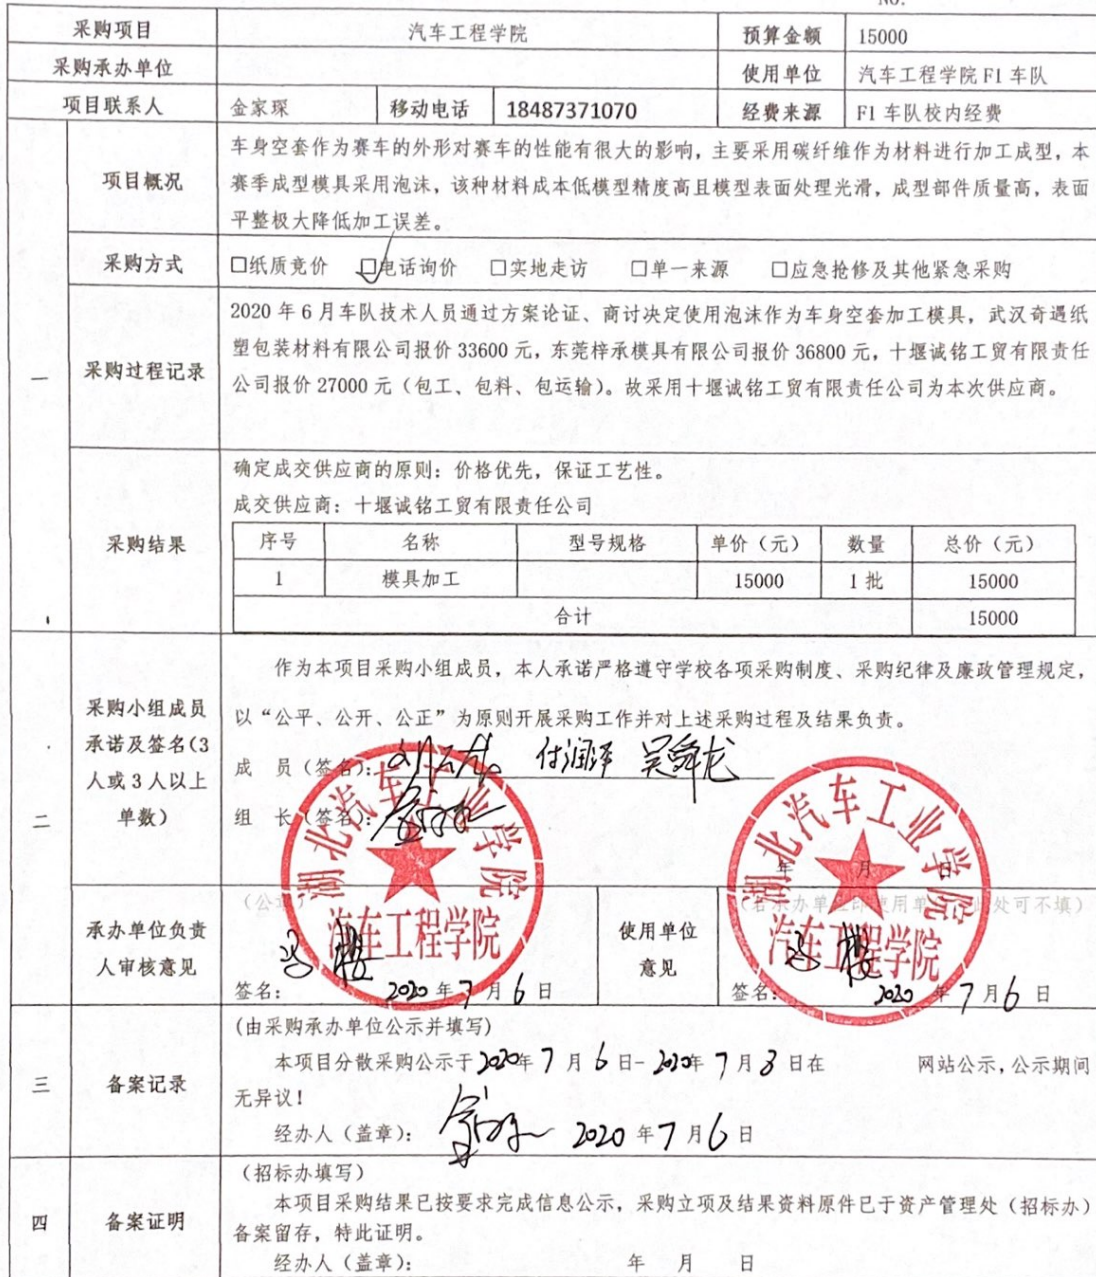 NO:
采购项目 汽车工程学院 预算金额 15000
采购承办单位 使用单位 汽车工程学院 F1 车队
项目联系人 金家琛 移动电话 18487371070 经费来源 F1 车队校内经费
一
项目概况
车身空套作为赛车的外形对赛车的性能有很大的影响，主要采用碳纤维作为材料进行加工成型，本
赛季成型模具采用泡沫，该种材料成本低模型精度高且模型表面处理光滑，成型部件质量高，表面
平整极大降低加工误差。
采购方式 □纸质竞价 □电话询价 □实地走访 □单一来源 □应急抢修及其他紧急采购
采购过程记录
2020 年 6 月车队技术人员通过方案论证、商讨决定使用泡沫作为车身空套加工模具，武汉奇遇纸
塑包装材料有限公司报价 33600 元，东莞梓承模具有限公司报价 36800 元，十堰诚铭工贸有限责任
公司报价 27000 元（包工、包料、包运输）。故采用十堰诚铭工贸有限责任公司为本次供应商。
采购结果
确定成交供应商的原则：价格优先，保证工艺性。
成交供应商：十堰诚铭工贸有限责任公司
序号 名称 型号规格 单价（元） 数量 总价（元）
1 模具加工 15000 1 批 15000
合计 15000
二
采购小组成员
承诺及签名(3
人或 3 人以上
单数）
作为本项目采购小组成员，本人承诺严格遵守学校各项采购制度、采购纪律及廉政管理规定，
以“公平、公开、公正”为原则开展采购工作并对上述采购过程及结果负责。
成 员（签名）： 付润泽 吴舜龙
组 长（签名）：
年 月 日
湖北汽车工业学院
汽车工程学院
湖北汽车工业学院
汽车工程学院
承办单位负责
人审核意见
（公章）
签名： 2020 年 7 月 6 日
使用单位
意见
（若承办单位即使用单位，此处可不填）
签名： 2020 年 7 月 6 日
三
备案记录
(由采购承办单位公示并填写)
本项目分散采购公示于 2020年 7 月 6 日- 2020年 7 月 8 日在 网站公示，公示期间
无异议！
经办人（盖章）： 2020 年 7 月 6 日
四
备案证明
（招标办填写）
本项目采购结果已按要求完成信息公示，采购立项及结果资料原件已于资产管理处（招标办）
备案留存，特此证明。
经办人（盖章）： 年 月 日